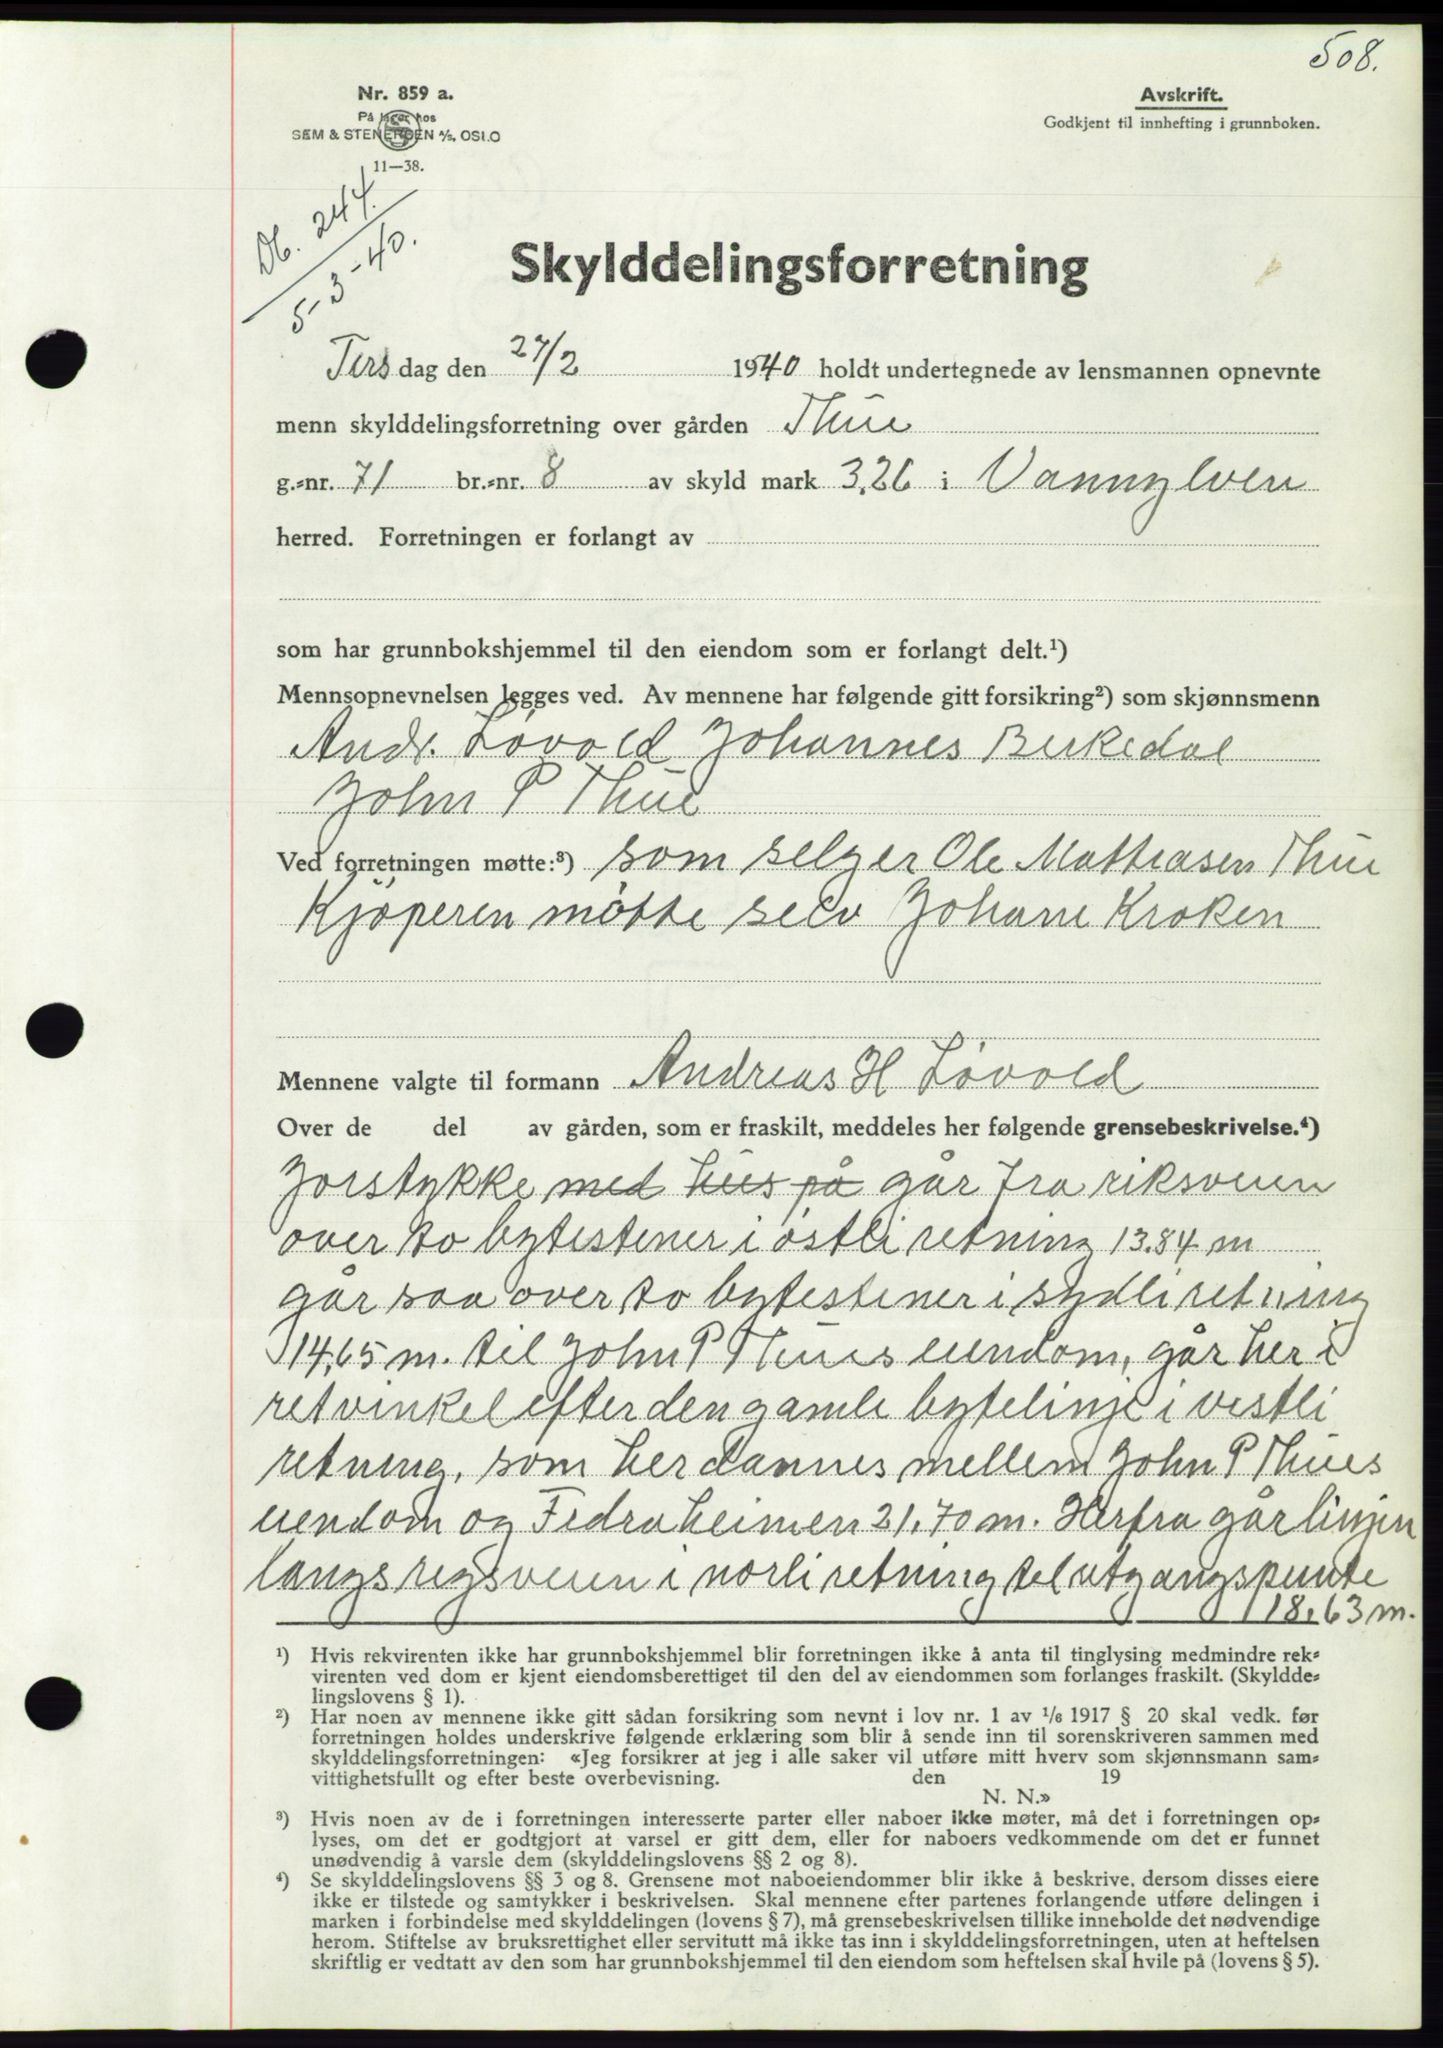 508.
Nr. 859 a.
På lager hos
SEM & STENERSEN A/S, OSLO
11—38.
Avskrift.
Godkjent til innhefting i grunnboken.
Db. 244.
5-3-40.
Skylddelingsforretning
Tirsdag den 27/2 1940 holdt undertegnede av lensmannen opnevnte
menn skylddelingsforretning over gården Thue
g.=nr. 71 br.=nr. 8 av skyld mark 3,26 i Vannylven
herred. Forretningen er forlangt av
som har grunnbokshjemmel til den eiendom som er forlangt delt.¹)
Mennsopnevnelsen legges ved. Av mennene har følgende gitt forsikring²) som skjønnsmenn
Andr. Løvold Johannes Birkedal
John P Thue
Ved forretningen møtte:³) som selger Ole Mathiasen Thue
Kjøperen møtte selv Johane Kroken
Mennene valgte til formann Andreas H Løvold
Over de del av gården, som er fraskilt, meddeles her følgende grensebeskrivelse.⁴)
Jorstykke med hus på går fra riksveien
over to bytestener i østli retning 13.84 m
går saa over to bytestener i sydli retning
14,65 m. til John P Thues eiendom, går her i
retvinkel efter den gamle bytelinje i vestli
retning, som her dannes mellem John P Thues
eiendom og Fedraheimen 21,70 m. Herfra går linjen
langs rigsveien i norli retning til utgangspunte
18,63 m.
¹) Hvis rekvirenten ikke har grunnbokshjemmel blir forretningen ikke å anta til tinglysing medmindre rek=
virenten ved dom er kjent eiendomsberettiget til den del av eiendommen som forlanges fraskilt. (Skyldde=
lingslovens § 1).
²) Har noen av mennene ikke gitt sådan forsikring som nevnt i lov nr. 1 av 1/6 1917 § 20 skal vedk. før
forretningen holdes underskrive følgende erklæring som blir å sende inn til sorenskriveren sammen med
skylddelingsforretningen: «Jeg forsikrer at jeg i alle saker vil utføre mitt hverv som skjønnsmann sam=
vittighetsfullt og efter beste overbevisning. den 19
N. N.»
³) Hvis noen av de i forretningen interesserte parter eller naboer ikke møter, må det i forretningen op=
lyses, om det er godtgjort at varsel er gitt dem, eller for naboers vedkommende om det er funnet
unødvendig å varsle dem (skylddelingslovens §§ 2 og 8).
⁴) Se skylddelingslovens §§ 3 og 8. Grensene mot naboeiendommer blir ikke å beskrive, dersom disses eiere
ikke er tilstede og samtykker i beskrivelsen. Skal mennene efter partenes forlangende utføre delingen i
marken i forbindelse med skylddelingen (lovens § 7), må grensebeskrivelsen tillike inneholde det nødvendige
herom. Stiftelse av bruksrettighet eller servitutt må ikke tas inn i skylddelingsforretningen, uten at heftelsen
skriftlig er vedtatt av den som har grunnbokshjemmel til den eiendom som heftelsen skal hvile på (lovens § 5).